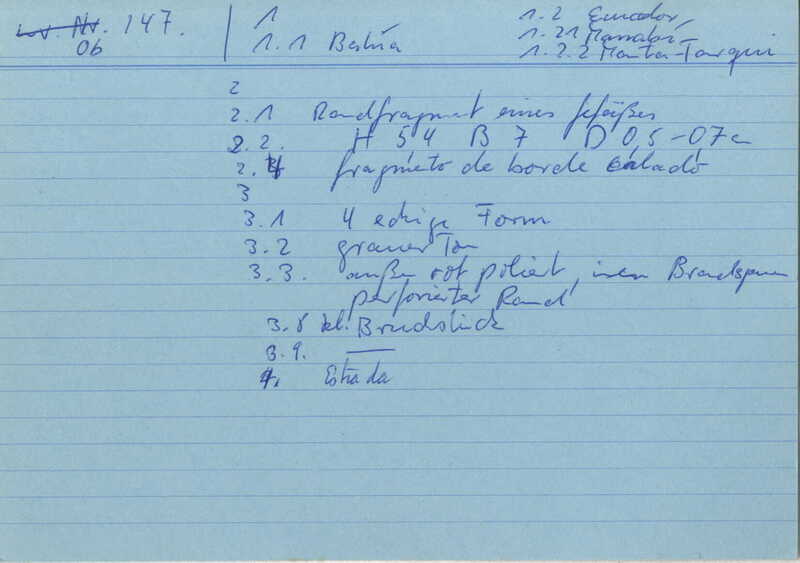 Lv. Nr. 147.
06
1
1.1 Bahía
1.2 Ecuador,
1.21 Manabí
1.2.2 Manta-Tarqui
2
2.1 Randfragment eines Gefäßes
2.2. H 5,4 B 7 D 0,5-0,7 c
2.4 fragmento de borde calado
3
3.1 4 eckige Form
3.2 grauer Ton
3.3. außen rot poliert, innen Brandspuren
perforierter Rand
3.8 kl. Bruchstück
3.9. —
4. Estrada